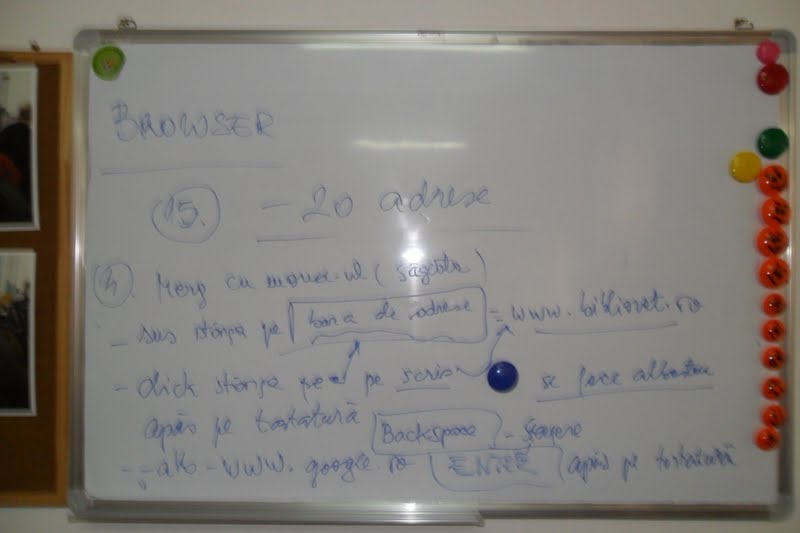 BROWSER
15. - 20 adrese
2. Merg cu mouse-ul (săgeata)
- sus stânga pe bara de adrese = www.biblionet.ro
- click stânga pe scris se face albastru
apăs pe tastatură Backspace - ștergere
- www.google.ro ENTER apăs pe tastatură